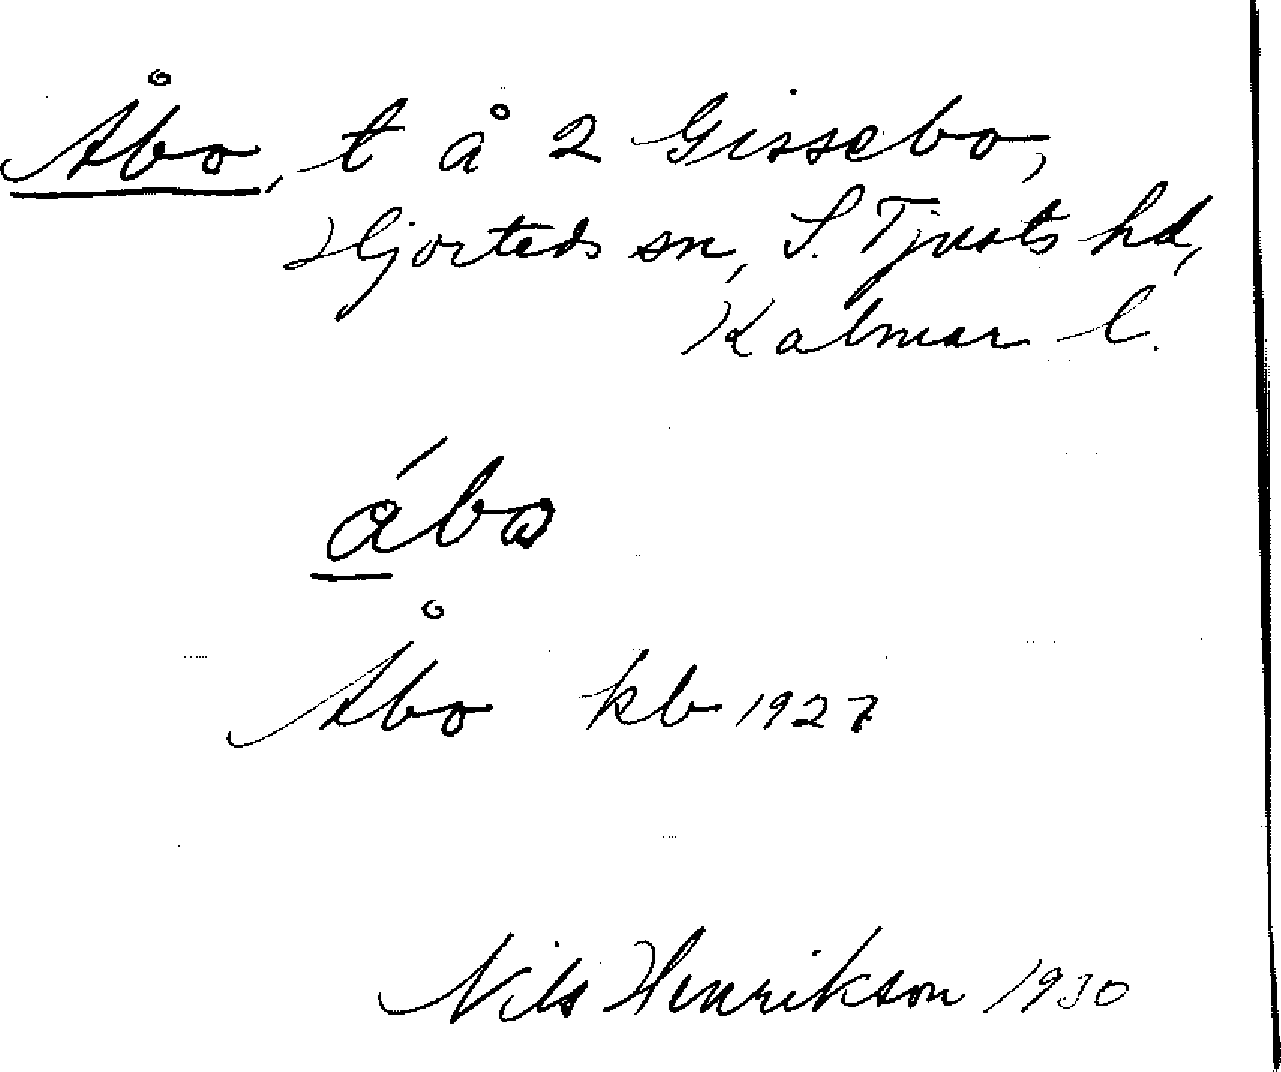 Åbo, t å 2 Gissebo,
Hjorteds sn, S. Tjusts hd,
Kalmar l.
ábo
Åbo kb 1927
Nils Henrikson 1930